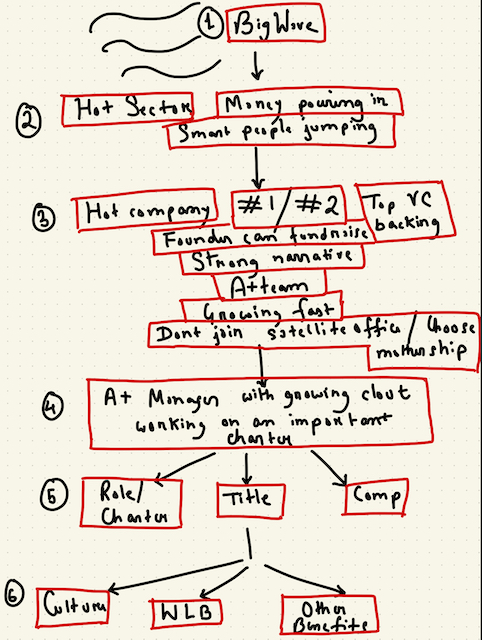 ① Big Wave
② Hot Sector Money pouring in
Smart people jumping
③ Hot company #1/#2 Top VC
backing
Founder can fundraise
Strong narrative
A+ team
Growing fast
Dont join satellite office / Choose
mothership
④ A+ Manager with growing clout
working on an important
charter
⑤ Role/
Charter Title Comp
⑥ Culture WLB Other
Benefits